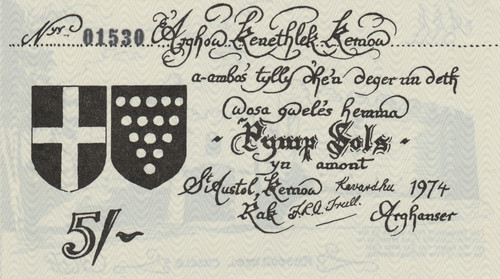 Nyv. 01530
Arghow Kenethlek Kernow
a-ambos tylly dhe'n deger un deth
wosa gweles hemma
- Pymp Sols -
yn amont
St Austol, Kernow Kevardhu 1974
5/-
Rak F.R.Q. Trull. Arghanser